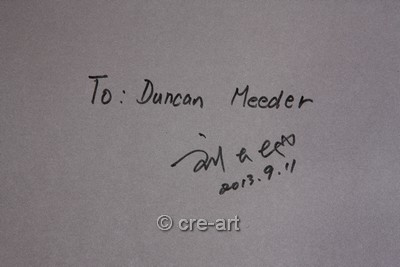 To: Duncan Meeder
2013.9.11
© cre-art